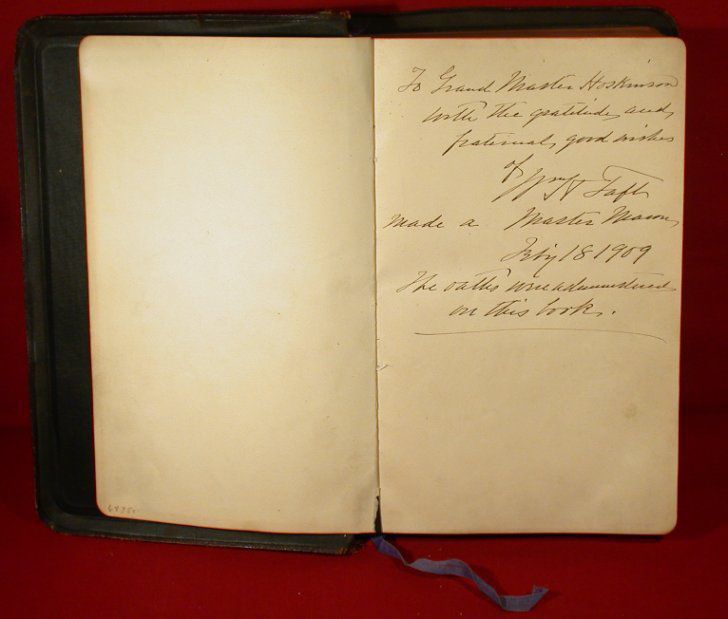 To Grand Master Hoskinson
with the gratitude and
fraternal good wishes
of
Wm H Taft
made a Master Mason
Feby 18 1909
The oaths were administered
on this book.